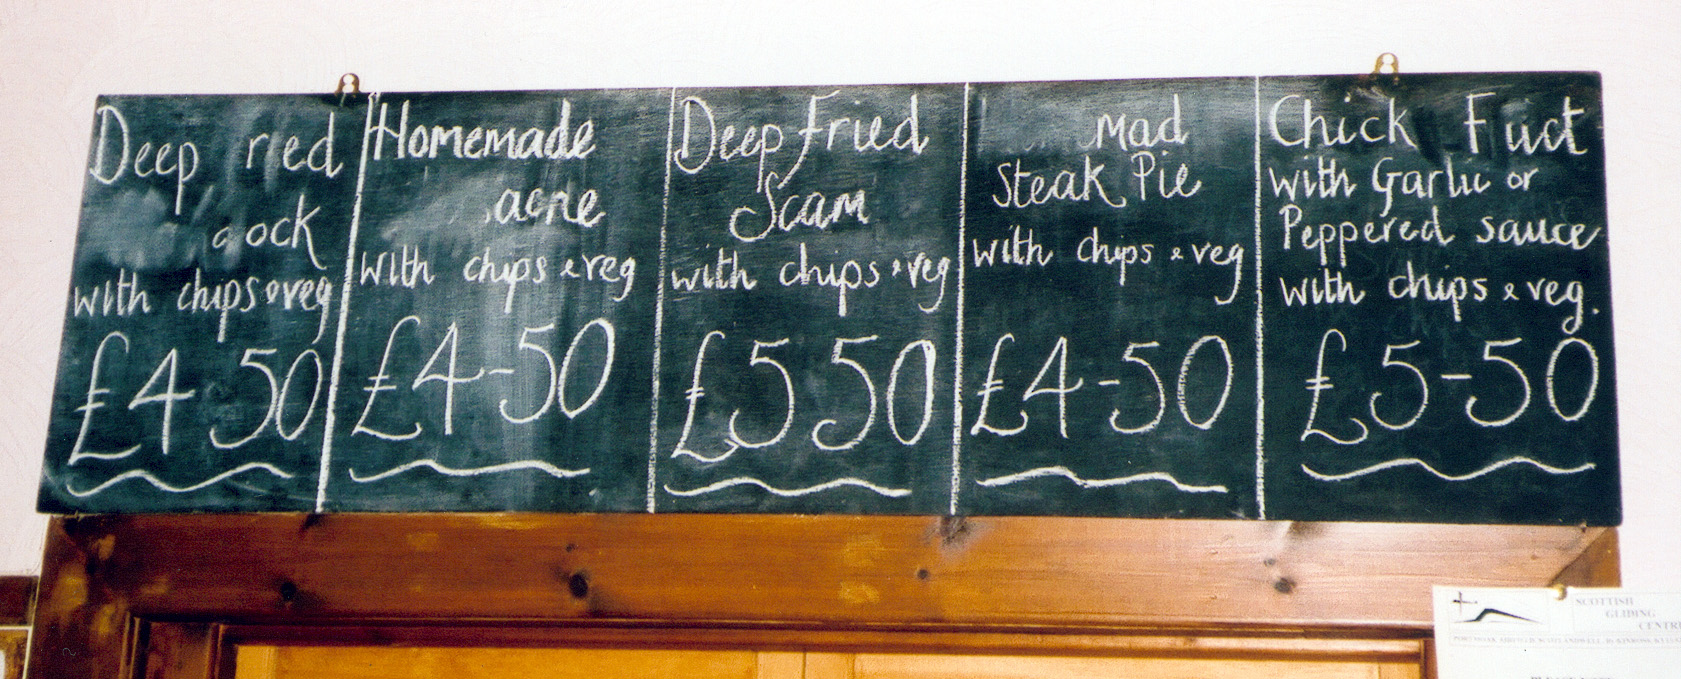 Deep ried
cock
with chips & veg
£4-50
Homemade
acne
with chips & veg
£4-50
Deep fried
Scam
with chips & veg
£5 50
mad
Steak Pie
with chips & veg
£4-50
Chick Fuct
with Garlic or
Peppered sauce
with chips & veg.
£5-50
SCOTTISH
GLIDING
CENTRE